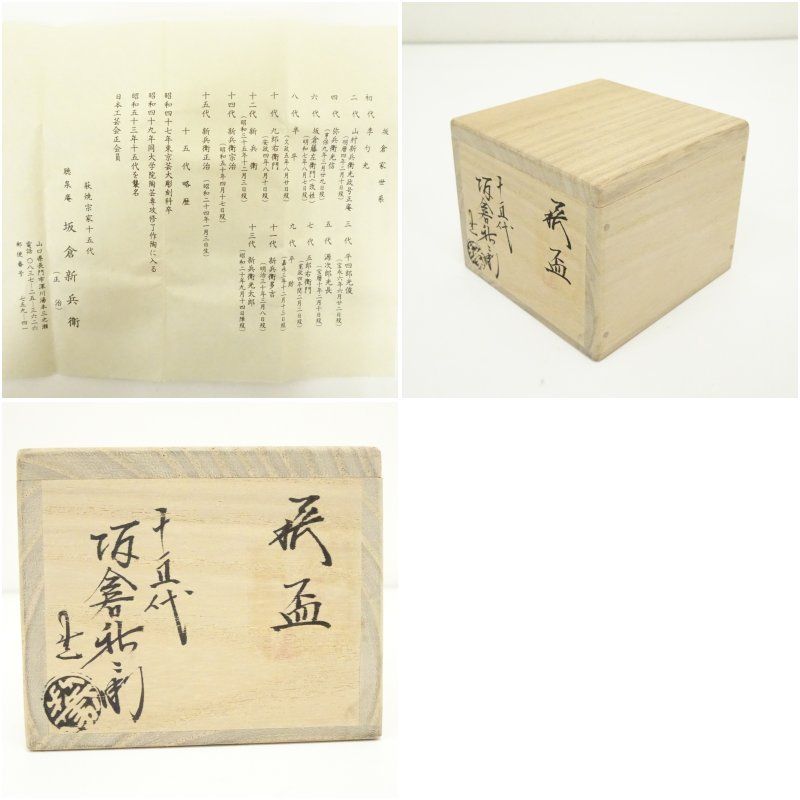 坂倉家世系
初代 李勺光
二代 山村新兵衛光政号正庵
(明暦四年二月十日歿)
三代 平四郎光俊
(宝永六年六月廿二日歿)
四代 弥兵衛光信
五代 源次郎光長
(宝暦十年二月十日歿)
六代 坂倉藤左衛門(改姓)
(明和七年八月七日歿)
七代 五郎右衛門
八代 半平
(文政五年八月廿日歿)
九代
十代 九郎右衛門
(安政四年八月十日歿)
十一代 新兵衛多吉
(明治三十年三月八日歿)
十二代 新兵衛
(昭和三十五年十二月三日歿)
十三代 新兵衛光太郎
(昭和二十年九月十四日陣歿)
十四代 新兵衛治
(昭和五十年四月十七日歿)
十五代 新兵衛正治
(昭和二十四年一月三日生)
十五代略歴
昭和四十七年東京芸大彫刻科卒
昭和四十九年同大学院陶芸専攻修了作陶に入る
昭和五十三年十五代を襲名
日本工芸会正会員
萩焼宗家十五代
坂倉新兵衛
(正治)
山口県長門市深川湯本三ノ瀬
電話〇八三七-二五-三六二六
郵便番号 七五九-四一
萩盃
十五代
坂倉新兵衛
造
萩盃
十五代
坂倉新兵衛
造